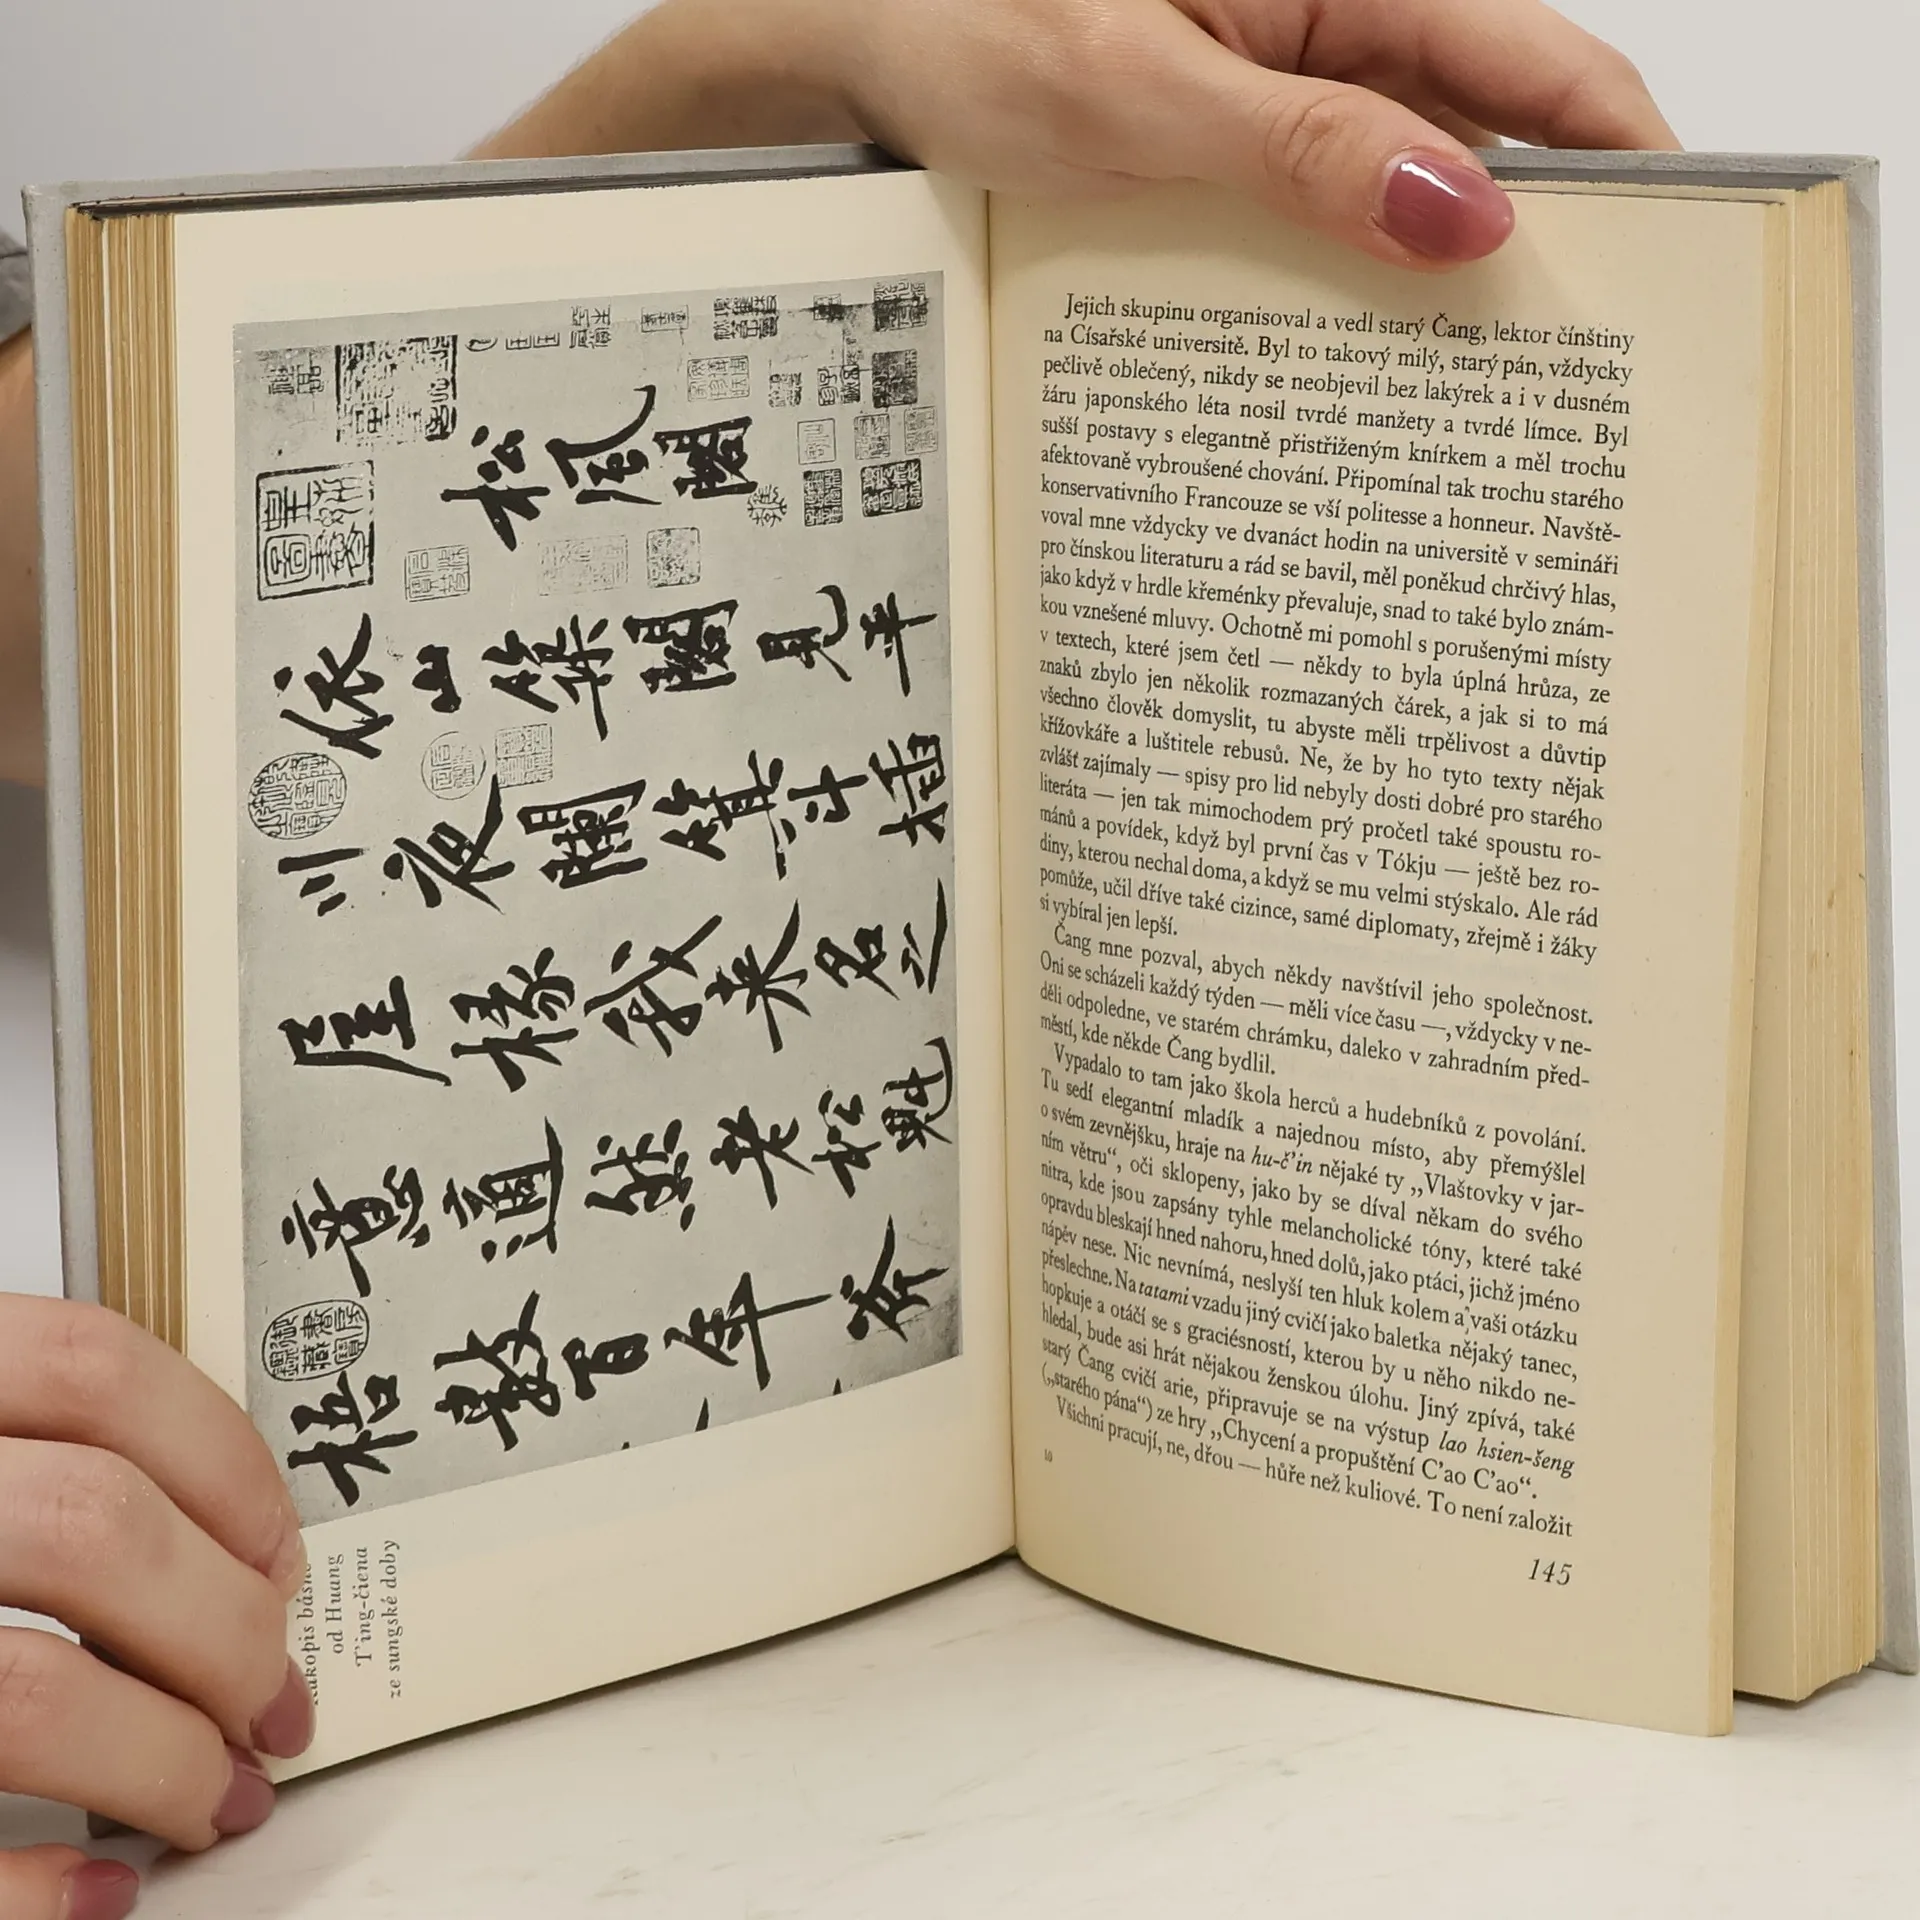 松風閣
依山築閣見平
川夜闌箕斗插
屋椽我來名之
意適然老松魁
梧數百年斧
od Huang
T'ing-čiena
ze sungské doby
Jejich skupinu organisoval a vedl starý Čang, lektor čínštiny
na Císařské universitě. Byl to takový milý, starý pán, vždycky
pečlivě oblečený, nikdy se neobjevil bez lakýrek a i v dusném
žáru japonského léta nosil tvrdé manžety a tvrdé límce. Byl
sušší postavy s elegantně přistřiženým knírkem a měl trochu
afektovaně vybroušené chování. Připomínal tak trochu starého
konservativního Francouze se vší politesse a honneur. Navště-
voval mne vždycky ve dvanáct hodin na universitě v semináři
pro čínskou literaturu a rád se bavil, měl poněkud chrčivý hlas,
jako když v hrdle křeménky převaluje, snad to také bylo znám-
kou vznešené mluvy. Ochotně mi pomohl s porušenými místy
v textech, které jsem četl — někdy to byla úplná hrůza, ze
znaků zbylo jen několik rozmazaných čárek, a jak si to má
všechno člověk domyslit, tu abyste měli trpělivost a důvtip
křížovkáře a luštitele rebusů. Ne, že by ho tyto texty nějak
zvlášť zajímaly — spisy pro lid nebyly dosti dobré pro starého
literáta — jen tak mimochodem prý pročetl také spoustu ro-
mánů a povídek, když byl první čas v Tókju — ještě bez ro-
diny, kterou nechal doma, a když se mu velmi stýskalo. Ale rád
pomůže, učil dříve také cizince, samé diplomaty, zřejmě i žáky
si vybíral jen lepší.
Čang mne pozval, abych někdy navštívil jeho společnost.
Oni se scházeli každý týden — měli více času —, vždycky v ne-
děli odpoledne, ve starém chrámku, daleko v zahradním před-
městí, kde někde Čang bydlil.
Vypadalo to tam jako škola herců a hudebníků z povolání.
Tu sedí elegantní mladík a najednou místo, aby přemýšlel
o svém zevnějšku, hraje na hu-č'in nějaké ty „Vlaštovky v jar-
ním větru“, oči sklopeny, jako by se díval někam do svého
nitra, kde jsou zapsány tyhle melancholické tóny, které také
opravdu bleskají hned nahoru, hned dolů, jako ptáci, jichž jméno
nápěv nese. Nic nevnímá, neslyší ten hluk kolem a vaši otázku
přeslechne. Na tatami vzadu jiný cvičí jako baletka nějaký tanec,
hopkuje a otáčí se s graciésností, kterou by u něho nikdo ne-
hledal, bude asi hrát nějakou ženskou úlohu. Jiný zpívá, také
starý Čang cvičí arie, připravuje se na výstup lao hsien-šeng
(„starého pána“) ze hry „Chycení a propuštění C'ao C'ao“.
Všichni pracují, ne, dřou — hůře než kuliové. To není založit
10
145